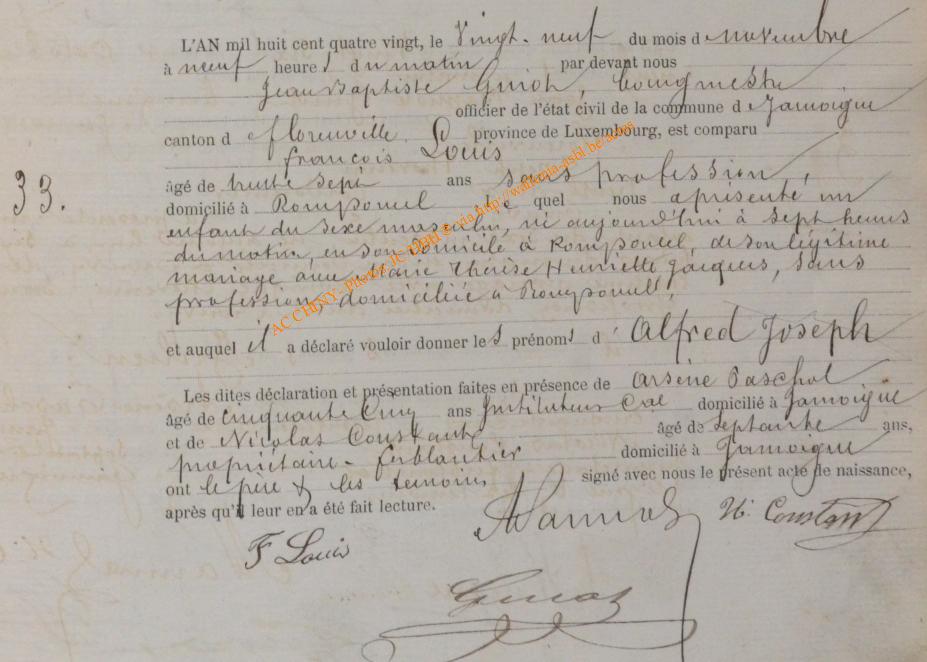 L'AN mil huit cent quatre vingt, le Vingt-neuf du mois d e novembre
à neuf heure s d u matin par devant nous
Jean Baptiste Guiot, bourgmestre
officier de l'état civil de la commune d e Jamoigne
canton d e Florenville province de Luxembourg, est comparu
françois Louis
33.
âgé de trente sept ans sans profession,
domicilié à Romponcel le quel nous a présenté un
enfant du sexe masculin, né aujourd'hui à sept heures
du matin, en son domicile à Romponcel, de son légitime
mariage avec Marie Thérèse Henriette Jacques, sans
profession, domiciliée à Romponcel,
et auquel il a déclaré vouloir donner le s prénom s d' Alfred Joseph
Les dites déclaration et présentation faites en présence de Arsène
âgé de cinquante cinq ans Instituteur domicilié à Jamoigne
et de Nicolas Constant âgé de septante ans,
propriétaire - ferblantier domicilié à Jamoigne
ont le père & les témoins signé avec nous le présent acte de naissance,
après qu'il leur en a été fait lecture.
N. Constant
F Louis
Guiot